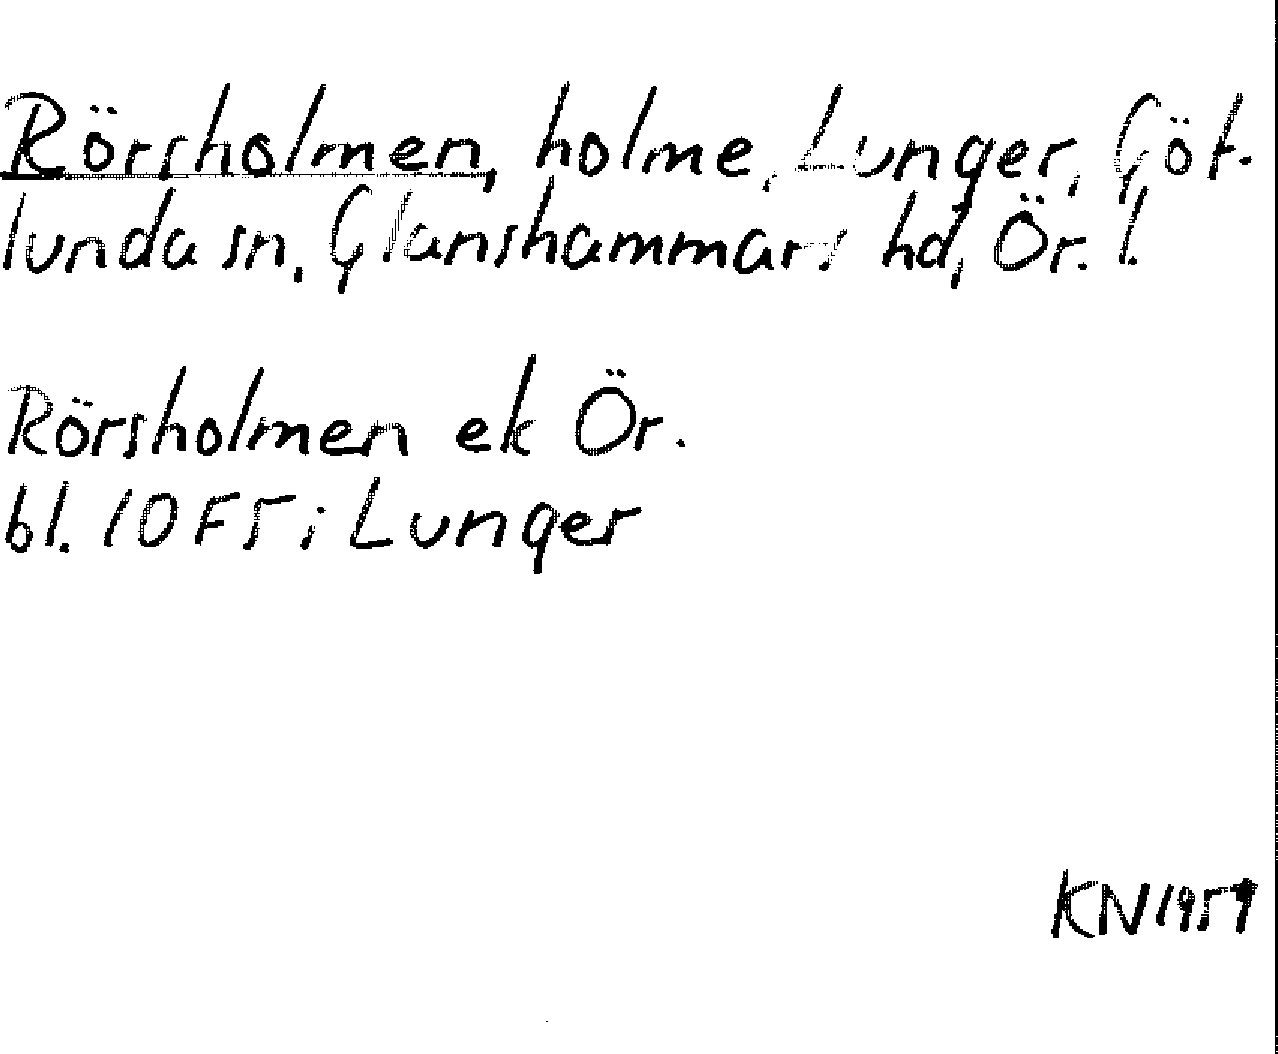 Rörsholmen, holme, Lunger, Göt-
lunda sn, Glanshammars hd, Ör. l.
Rörsholmen ek Ör.
bl. 10 F5; Lunger
KN 1959